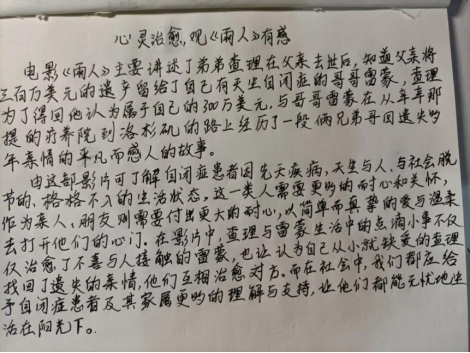 心灵治愈,观《雨人》有感
电影《雨人》主要讲述了弟弟查理在父亲去世后,知道父亲将
三百万美元的遗产留给了自己有天生自闭症的哥哥雷蒙,查理
为了得回他认为属于自己的300万美元,与哥哥雷蒙在从辛辛那
提的疗养院到洛杉矶的路上经历了一段俩兄弟寻回遗失多
年亲情的平凡而感人的故事。
由这部影片可了解自闭症患者因先天疾病,天生与人、与社会脱
节的、格格不入的生活状态,这一类人需要更多的耐心和关怀,
作为亲人、朋友则需要付出更大的耐心,以简单而真挚的爱与温柔
去打开他们的心门。在影片中,查理与雷蒙生活中的点滴小事不仅
仅治愈了不喜与人接触的雷蒙,也让认为自己从小就缺爱的查理
找回了遗失的亲情,他们互相治愈对方。而在社会中,我们都应给
予自闭症患者及其家属更多的理解与支持,让他们都能无忧地生
活在阳光下。